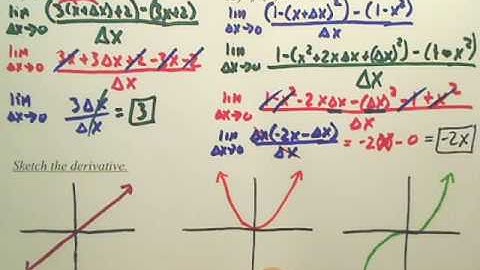 lim Δx→0 (3(x+Δx)+2)-(3x+2) / Δx
lim Δx→0 3x+3Δx+2-3x-2 / Δx
lim Δx→0 3Δx / Δx = 3
lim Δx→0 (1-(x+Δx)²)-(1-x²) / Δx
lim Δx→0 1-(x²+2xΔx+(Δx)²)-(1-x²) / Δx
lim Δx→0 1-x²-2xΔx-(Δx)²-1+x² / Δx
lim Δx→0 Δx(-2x-Δx) / Δx = -2x-0 = -2x
Sketch the derivative.